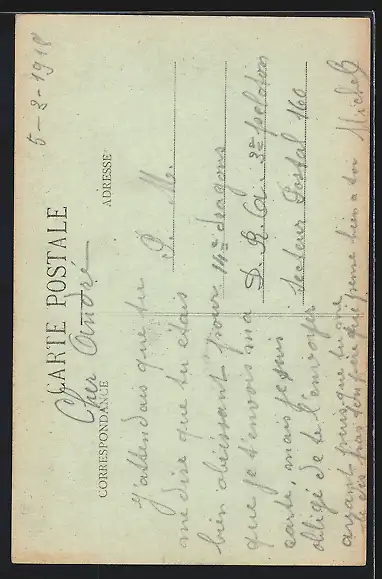 5-3-1918
CARTE POSTALE
CORRESPONDANCE
ADRESSE
Cher André
J'attendais que tu
me dise que tu étais
bien obéissant pour
que je t'envois ma
carte, mais je suis
obligé de te l'envoyer
ayant puisque tu me
le dis pas pense bien a toi Michel
P. M.
14e dragons
D. R. A. 3e peloton
Secteur Postal 160